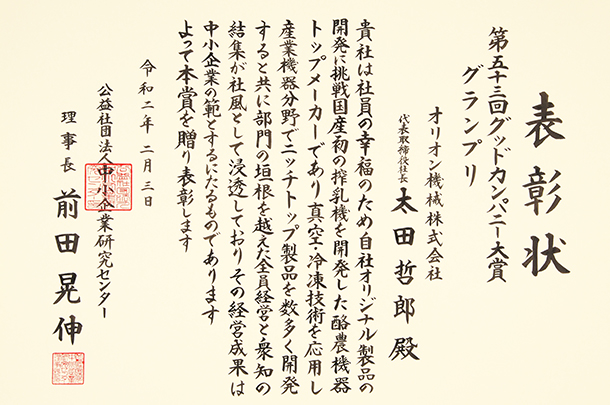 表彰状
第五十三回グッドカンパニー大賞
グランプリ
オリオン機械株式会社
代表取締役社長 太田哲郎殿
貴社は社員の幸福のため自社オリジナル製品の
開発に挑戦国産初の搾乳機を開発した酪農機器
トップメーカーであり真空・冷凍技術を応用し
産業機器分野でニッチトップ製品を数多く開発
すると共に部門の垣根を越えた全員経営と衆知の
結集が社風として浸透しておりその経営成果は
中小企業の範とするにたるものであります
よって本賞を贈り表彰します
令和二年二月三日
公益社団法人中小企業研究センター
理事長 前田晃伸